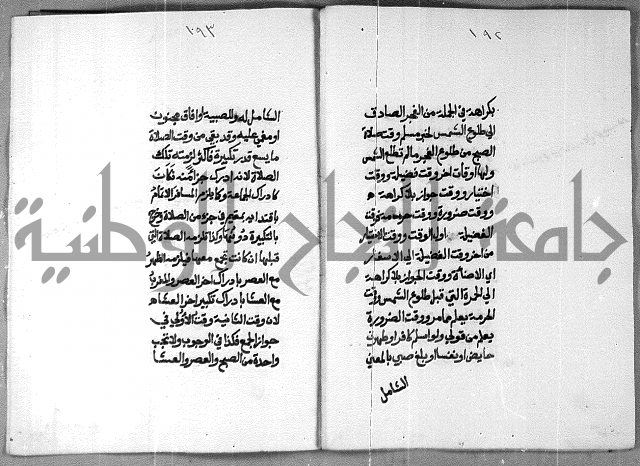 ١٩٢
بكراهة في الجملة من الفجر الصادق
الى طلوع الشمس لخبر مسلم وقت صلاة
الصبح من طلوع الفجر مالم تطلع الشمس
ولها اوقات اخر وقت فضيلة ووقت
اختيار ووقت جواز بلا كراهة
ووقت ضرورة ووقت حرمة فوقت
الفضيلة اول الوقت ووقت الاختيار
من اخر وقت الفضيلة الى الاسفار
اي الاضاءة ووقت الجواز بلا كراهة
الى الحمرة التي قبل طلوع الشمس ووقت
الحرمة يعلم مما مر ووقت الضرورة
يعلم من قولي ولو اسلم كافر او طهرت
حايض او نفسا او بلغ صبي بالمعنى
الشامل
١٩٣
الشامل له وللصبية او افاق مجنون
او مغمى عليه وقد بقي من وقت الصلاة
ما يسع قدر تكبيرة فاكثر لزمته تلك
الصلاة لانه ادرك جزأ منه فكان
كادراك الجماعة وكما يلزم المسافر الاتمام
باقتدائه بمقيم في جزء من الصلاة وخرج
بالتكبيرة دونها وكذا تلزمه الصلاة التي
قبلها ان كانت تجمع معها فيلزمه الظهر
مع العصر بادراك اخر العصر والمغرب
مع العشا بادراك تكبير اخر العشا
لان وقت الثانية وقت الاولى في
جواز الجمع فكذا في الوجوب ولا تجب
واحدة من الصبح والعصر والعشا
جامعة النجاح الوطنية